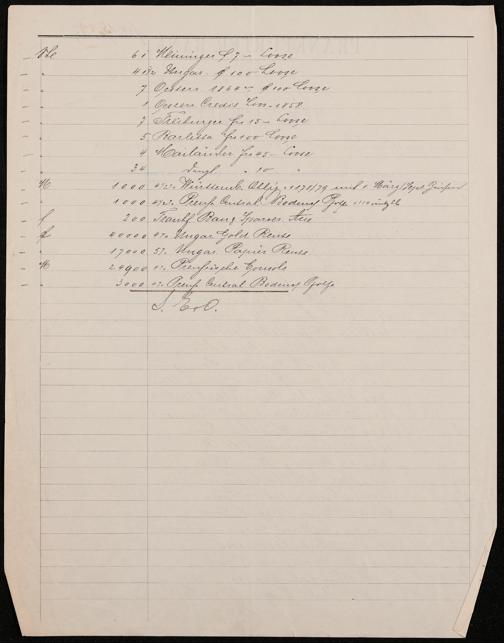 Stk 61 Meininger f 7 – Loose
„ 4 Ungar. f 100 Loose
„ 7 Oesterr 1860er f 100 Loose
„ 1 Oesterr Credit 1858
„ 7 Freiburger Frs 15 – Loose
„ 5 Barletta Frs 100 Loose
„ 4 Mailänder Frs 45 – Loose
„ 34 dergl. „ 10 „
M 1000 Württemb. Oblig. 1878/79 und
„ 1000 Preuss Central Bodencr Pfdbr
f 200 Frankf. Bank
f 40000 4% Ungar Gold Rente
„ 17000 5% Ungar. Papier Rente
M 24900 4% Preussische Consols
„ 3000 4% Preuss Central Bodencr Pfdbr
S. E & O.